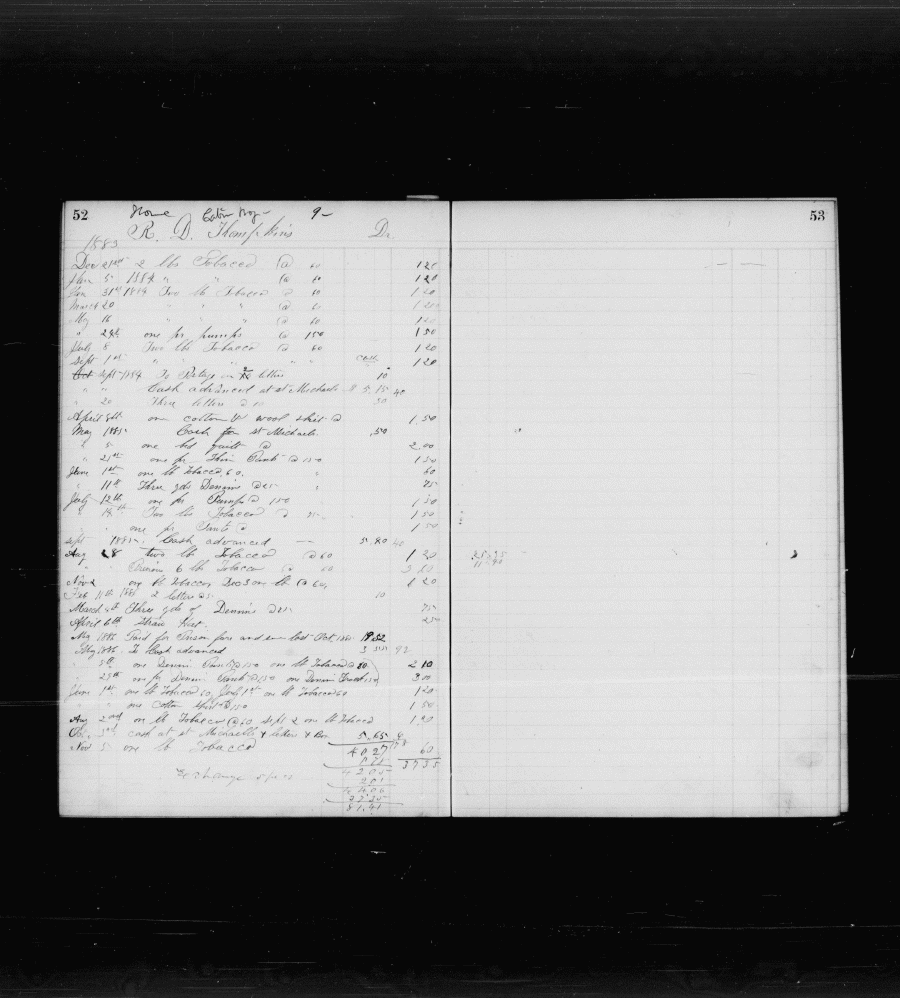 52
Home Cabin Boy 9-
R. D. Thompkins Dr.
1883
Dec 21st 2 lbs Tobacco @ 60 1 20
Jan 5 1884 " " @ 60 1 20
Jan 31st 1884 Two lb Tobacco @ 60 1 20
March 20 " " " @ 60 1 20
May 16 " " " @ 60 1 20
" 24th one pr pumps @ 150 1 50
July 8 Two lbs Tobacco @ 60 1 20
Sept 1st " " " " Cash 1 20
Sept 1884 To letters 10
" " Cash advanced at st Michaels $ 5.15 40
" 20 Three letters @ 10 30
April 8th one cotton & wool shirt @ 1.50
May 1885 Cash from st Michaels .50
" 5 one bed quilt @ 2.00
" 21st one pr Thin Pants @ 150 1 50
June 1st one lb Tobacco 60, 60
" 11th Three yds Dennim @ 25 75
July 12th one pr Pumps @ 150 1 50
" 14th Two lbs Tobacco @ 75 1 50
" " one pr Pants @ 1 50
Sept 1885. Cash advanced 5.80 40
Aug 28 two lb Tobacco @ 60 1 20
" " 6 lb Tobacco 60
Nov 2 one lb Tobacco Dec 3 one lb @ 60, 1 20
Feb 11th 1886 2 letters @ 5 10
March 4th Three yds of Dennim @ 25 75
April 6th Straw Hat.
May 1886 Paid for fare and Oct 19 52
May 1886. To Cash advanced 3 92
" 5th one Dennim Pants @ 150 one lb Tobacco @ 60 2 10
" 28th one pr Dennim Pants @ 150 one Dennim 150 3 00
June 1st one lb Tobacco 60, July 1st one lb Tobacco 60 1 20
" " one Cotton Shirt @ 150 1 50
Aug 2nd one lb Tobacco @ 60 Sept 2 one lb Tobacco 1 20
Oct 3rd cash at st Michaels & letters 5.65
Nov 5 one lb Tobacco 40 27 60
37 35
42 05
2 01
44 06
37 35
81.41
53